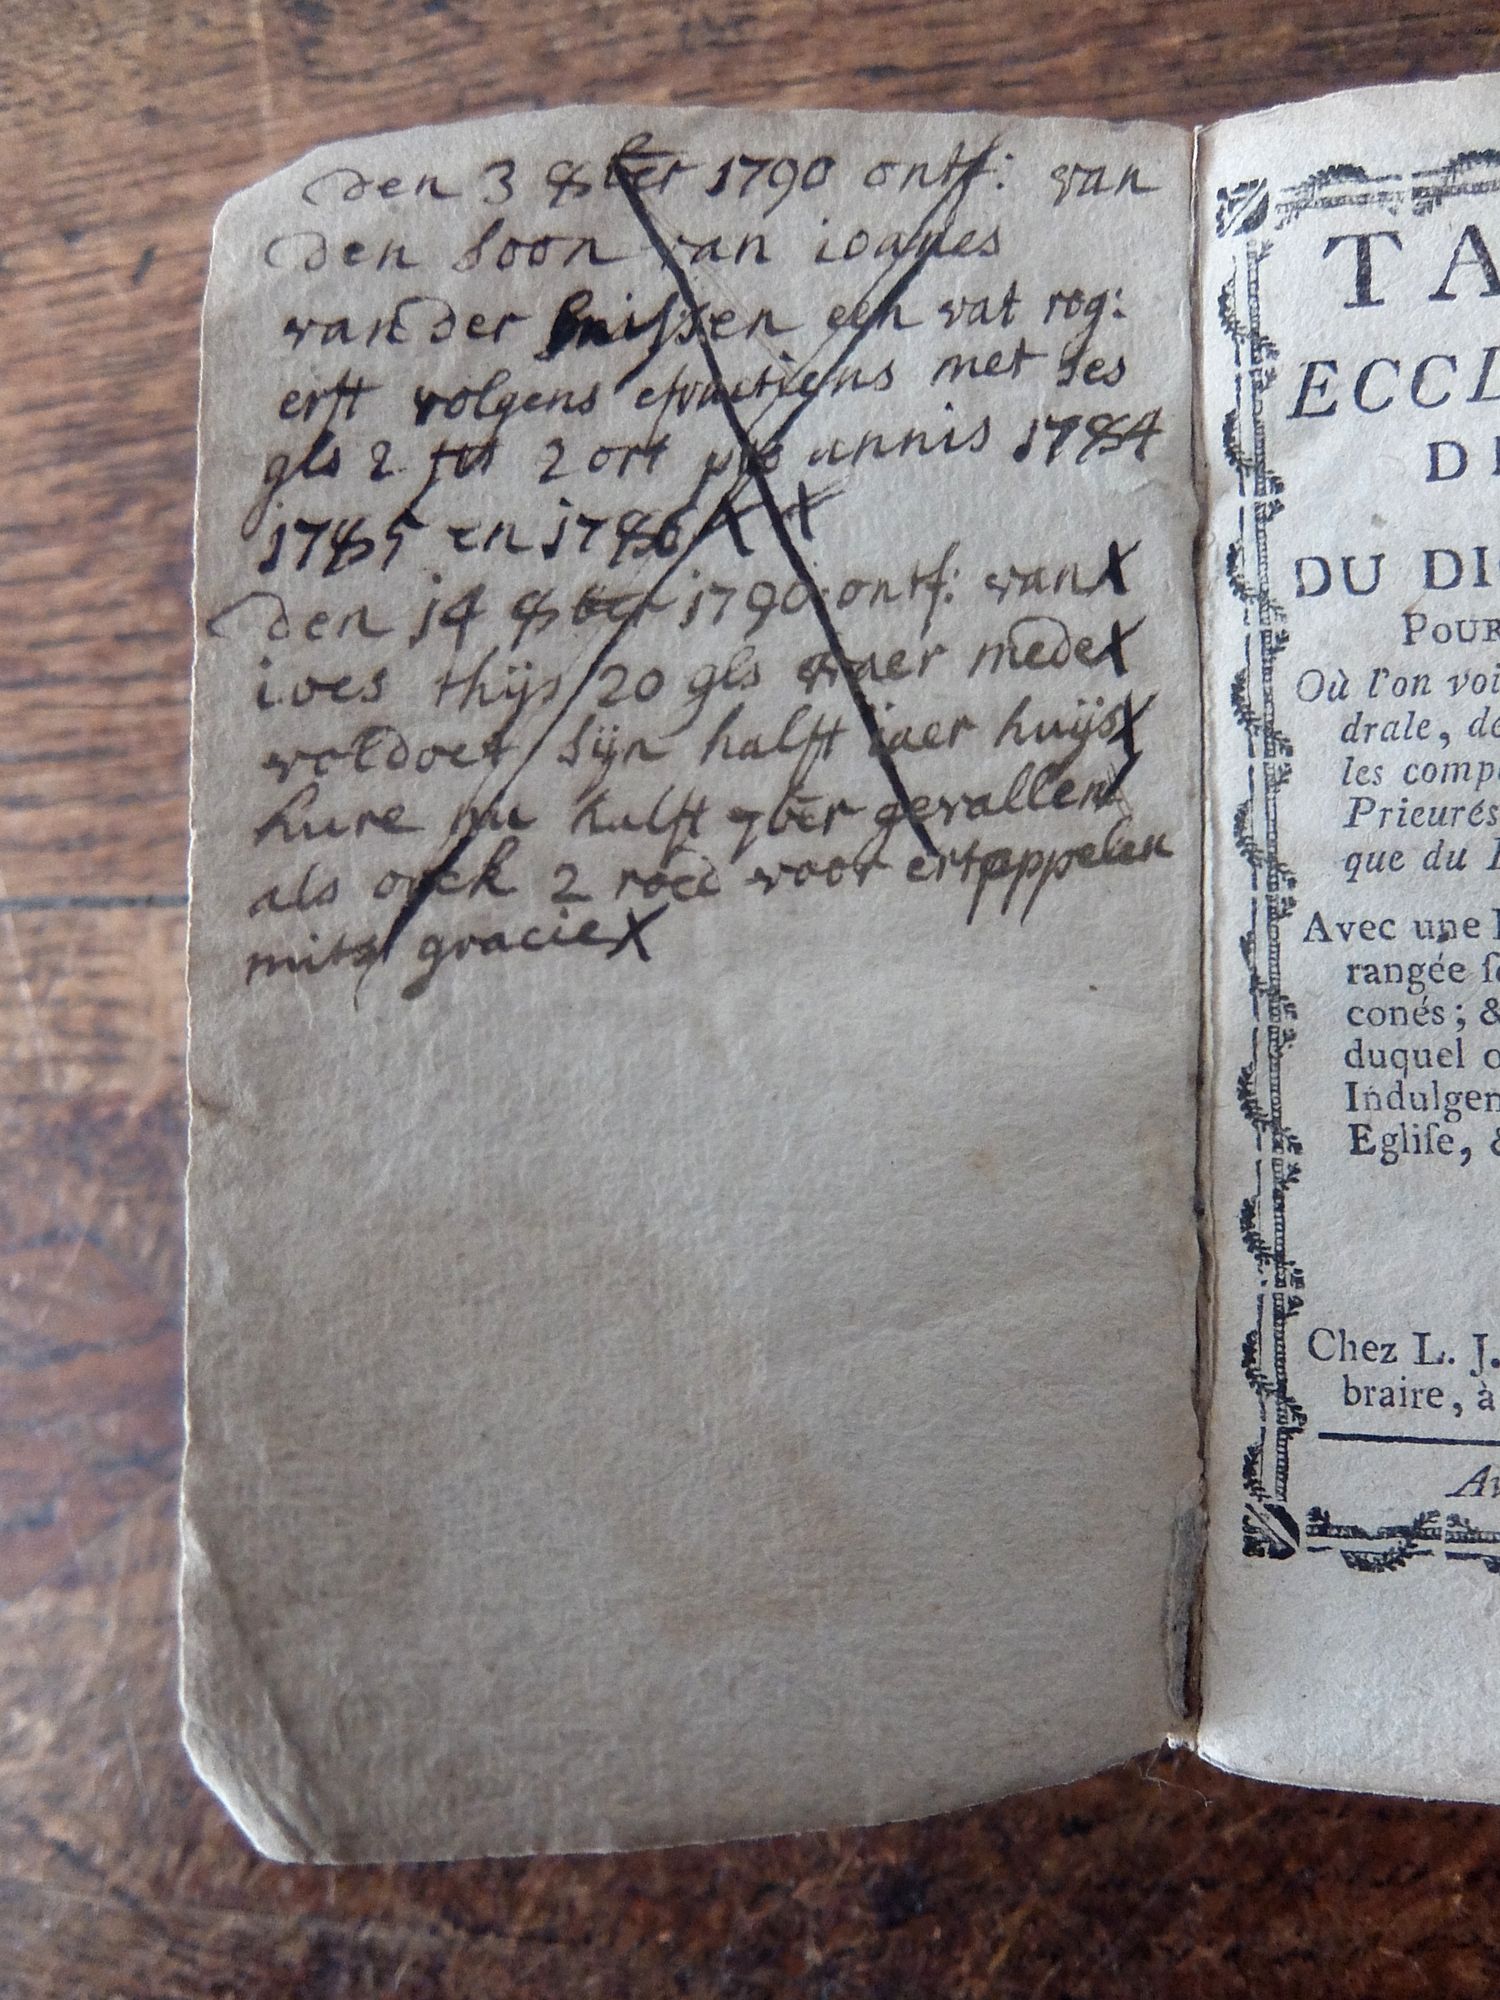 den 3 8ber 1790 ontf: van
den soon van ioanes
vander een vat rog:
erft volgens met ses
gls 2 2 ort pro annis 1784
1785 en 1786 X X
den 14 8ber 1790 ontf: van X
ives thijs 20 gls waer mede X
voldoet sijn halft iaer huijs X
hure nu halft 7ber gevallen
als oock 2 roed voor ertappelen
mits gracie X
TA
ECCL
DE
DU DIO
POUR
Où l'on voi
drale, de
les comp
Prieurés
que du
Avec une
rangée ſe
conés; &
duquel o
Indulgen
Egliſe, &
Chez L. J.
braire, à